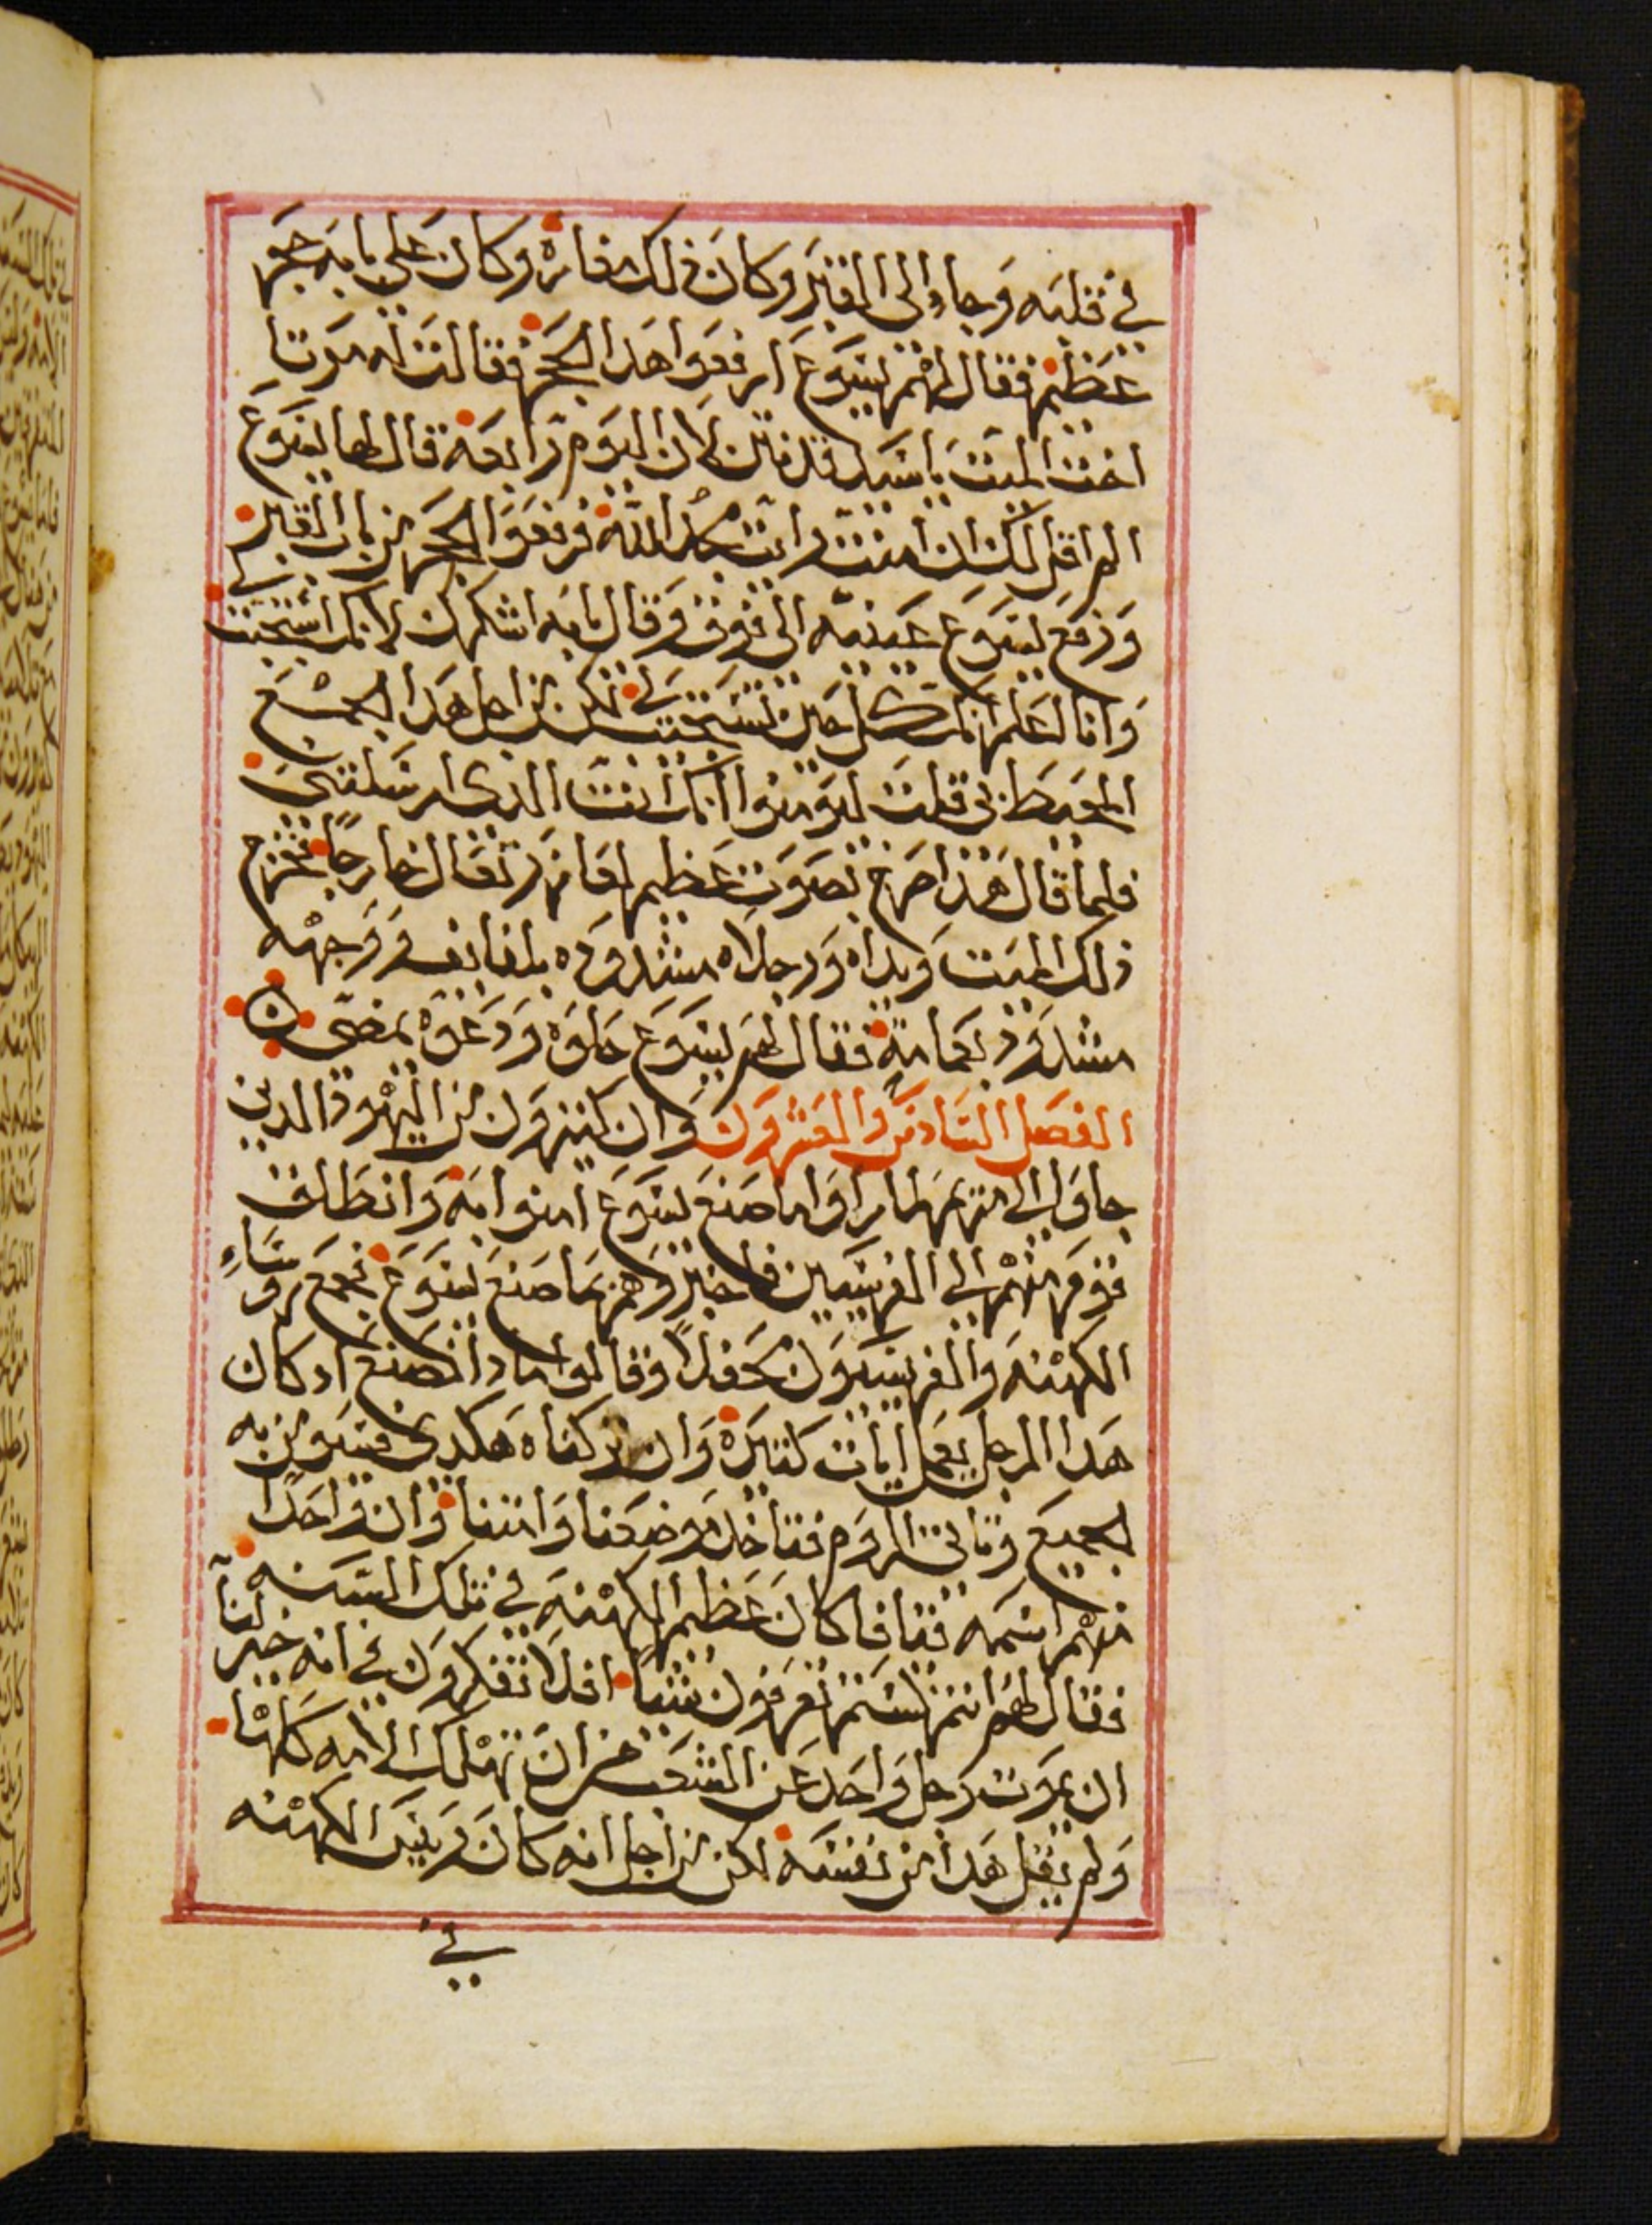 في قلبه وجاء الى القبر وكان ذلك مغاره وكان على بابه حجر
عظيم فقال لهم ليسوع ارفعوا هدا الحجر فقالت له مرتا
اخت الميت ياسيد قد نتن لان اليوم رابعه قال لها يسوع
الم اقل لك ان امنت رايت مجد الله فرفعوا الحجر من باب القبر
ورفع يسوع عينيه الى فوق وقال يابه اشكرك لانك استجبت لي
وانا لعلم انك كل حين تستجيب لي لكن من اجل هدا الجمع
المحيط بي قلت ليومنوا انك انت الدى ارسلتني
فلما قال هذا صرخ بصوت عظيم لعازر تعال خارجا فخرج
ذلك الميت ويداه ورجلاه مشدوده بلفايف ووجهه
مشدود بعمامة فقال لهم يسوع حلوه ودعوه يمضي
الفصل السادس والعشرون وان كثيرون من اليهود الدين
جاوا الى مريم لما راوا ما صنع يسوع امنوا به وانطلق
قوم منهم الى الفريسيين فاخبروهم بما صنع يسوع فجمع روساء
الكهنه والفريسيون محفلا وقالوا مادا نصنع اد كان
هدا الرجل يعمل ايات كثيرة وان تركناه هكدى فسيومن به
الجميع وتاتي الروم فتاخد موضعنا وامتنا وان واحدا
منهم اسمه قيافا كان عظيم الكهنه في تلك السنه
فقال لهم انتم لستم تعرفون شيا افلا تفكرون في انه خير لنا
ان يموت رجل واحد عن الشعب من ان تهلك الامه كلها
ولم يقل هدا من نفسه لكن من اجل انه كان رييس الكهنه
في